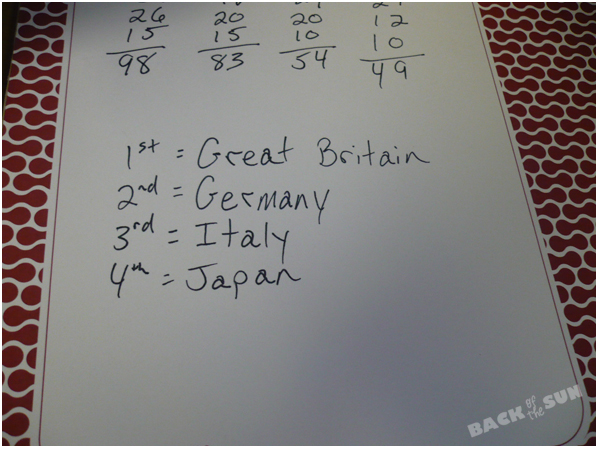 26 20 20 12
15 15 10 10
98 83 54 49
1st = Great Britain
2nd = Germany
3rd = Italy
4th = Japan
BACK of the SUN